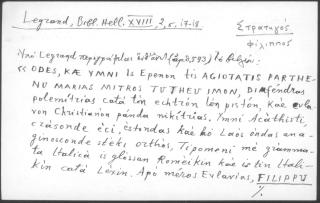 Legrand, Bibl. Hell. XVIII 2, 5, 17-18
Στρατηγός
Φίλιππος
Legrand περιγράφει
« ODES, KÆ YMNI Is Epenon tis AGIOTATIS PARTHE-
NU MARIAS MITROS TU THEU IMON, Diafendras
polemitrias catà tin echtròn ton pistón, kæ
von Christianòn panda nikitrias. Ymni Acàthisti,
czàsonde èci, èstondas kæ hò Laòs èndas ana-
ginosconde stèki orthòs, Tipomeni mè grámma-
ta Italicà is glossan Romèikin kæ is tin Itali-
kin catà Léxin. Apò mèros Evlavias, FILIPPU